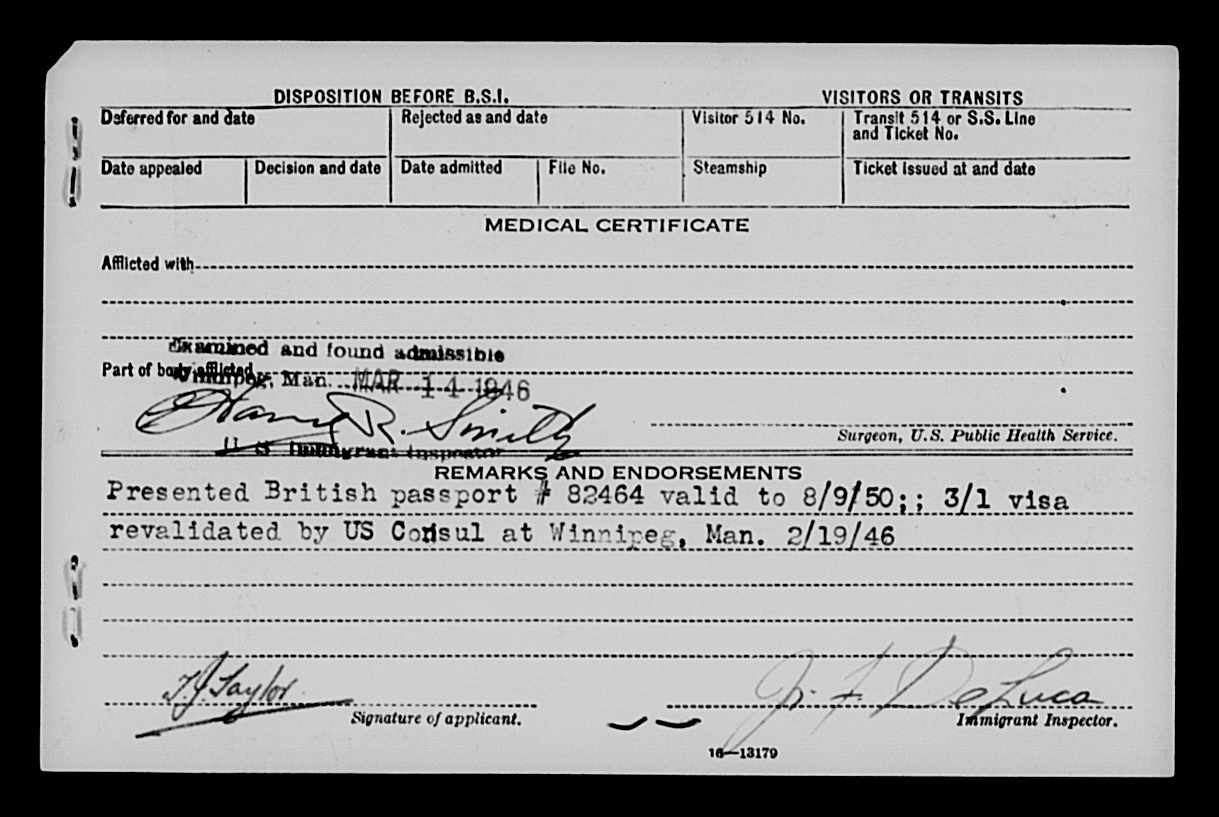 DISPOSITION BEFORE B.S.I. VISITORS OR TRANSITS
Deferred for and date Rejected as and date Visitor 514 No. Transit 514 or S.S. Line and Ticket No.
Date appealed Decision and date Date admitted File No. Steamship Ticket issued at and date
MEDICAL CERTIFICATE
Afflicted with
Examined and found admissible
Part of body afflicted
Winnipeg, Man. MAR 14 1946
Harry R. Smith
Surgeon, U.S. Public Health Service.
U S Immigrant Inspector
REMARKS AND ENDORSEMENTS
Presented British passport # 82464 valid to 8/9/50;; 3/1 visa
revalidated by US Consul at Winnipeg, Man. 2/19/46
T.J. Taylor J. F. DeLuca
Signature of applicant. Immigrant Inspector.
16—13179